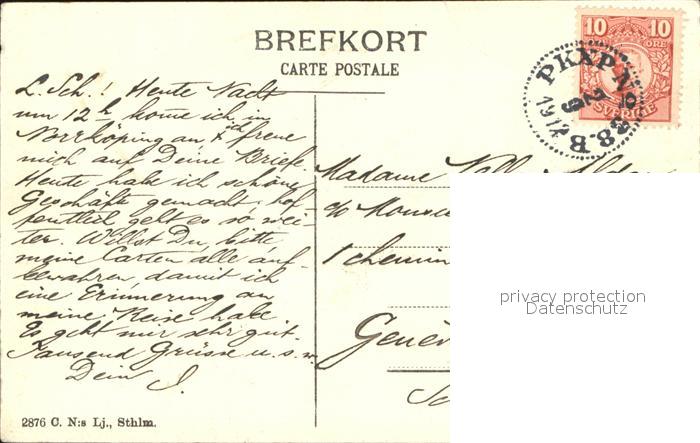 BREFKORT
CARTE POSTALE
10 10
ÖRE
SVERIGE
PKXP No 38.B
1917
L. Sch.! Heute Nacht
um 12 h kome ich in
Norrköping an & ich freue
mich auf Deine Briefe.
Heute habe ich schöne
Geschäfte gemacht, hof-
fentlich geht es so wei-
ter. Willst Du, bitte,
meine Carten alle auf-
bewahren, damit ich
eine Erinnerung an
meine Reise habe.
Es geht mir sehr gut.
Tausend Grüsse u.s.w.
Dein J.
Madame
c/o
1 chemin
Genèv
privacy protection
Datenschutz
2876 C. N:s Lj., Sthlm.